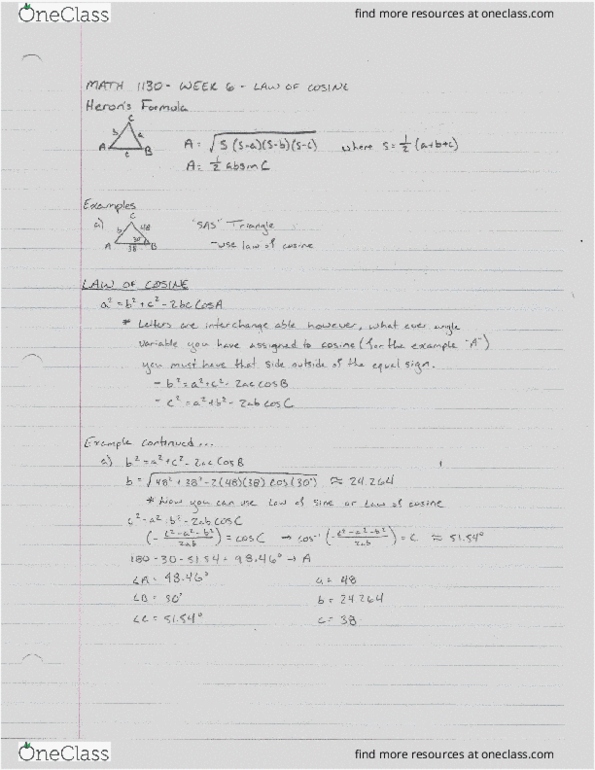 OneClass
find more resources at oneclass.com
MATH 1130 - WEEK 6 - LAW OF COSINE
Heron's Formula
C
b a
A c B
A = √S(S-a)(S-b)(S-c) where S = 1/2 (a+b+c)
A = 1/2 absinC
Examples
a) C
b 48
A 30° B
38
"SAS" Triangle
- use law of cosine
LAW OF COSINE
a² = b² + c² - 2bc CosA
* Letters are interchange able however, what ever angle
variable you have assigned to cosine (for the example "A")
you must have that side outside of the equal sign.
- b² = a² + c² - 2ac cosB
- c² = a² + b² - 2ab cosC
Example continued...
a) b² = a² + c² - 2ac CosB
b = √48² + 38² - 2(48)(38) cos(30°) ≈ 24.264
* Now you can use Law of sine or Law of cosine
c² - a² - b² - 2ab cosC
(- c² - a² - b² / 2ab) = cosC → cos⁻¹ (- c² - a² - b² / 2ab) = C ≈ 51.54°
180 - 30 - 51.54 = 98.46° → A
∠A = 48.46° a = 48
∠B = 30° b = 24.264
∠C = 51.54° c = 38
OneClass
find more resources at oneclass.com